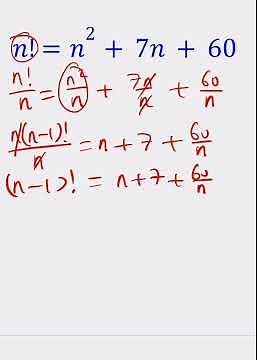 n! = n² + 7n + 60
n!/n = n²/n + 7n/n + 60/n
n(n-1)!/n = n + 7 + 60/n
(n-1)! = n+7+60/n